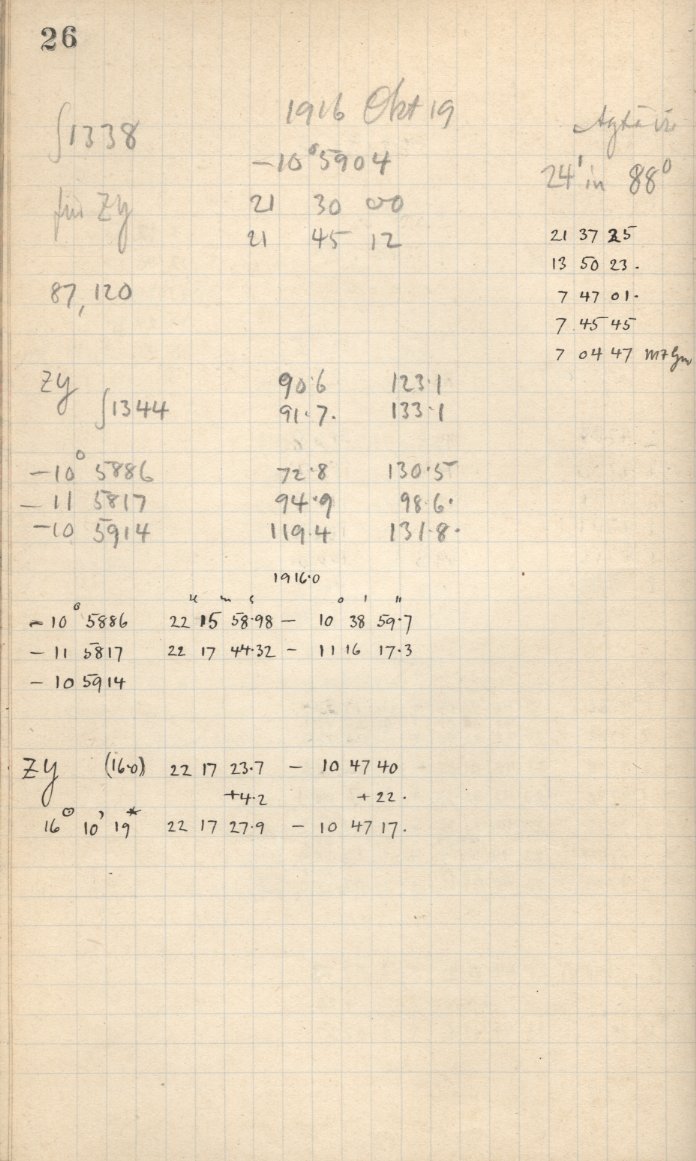 26
1916 Okt 19
∫1338
-10° 5904
24' in 88°
für ZY
21 30 00
21 45 12
21 37 25
13 50 23.
87,120
7 47 01.
7 45 45
7 04 47
ZY 90.6 123.1
∫1344 91.7. 133.1
-10° 5886 72.8 130.5
-11 5817 94.9 98.6.
-10 5914 119.4 131.8.
1916.0
H m s ° ' "
-10° 5886 22 15 58.98 - 10 38 59.7
-11 5817 22 17 44.32 - 11 16 17.3
-10 5914
ZY (16.0) 22 17 23.7 - 10 47 40
+4.2 +22.
16° 10' 19* 22 17 27.9 - 10 47 17.